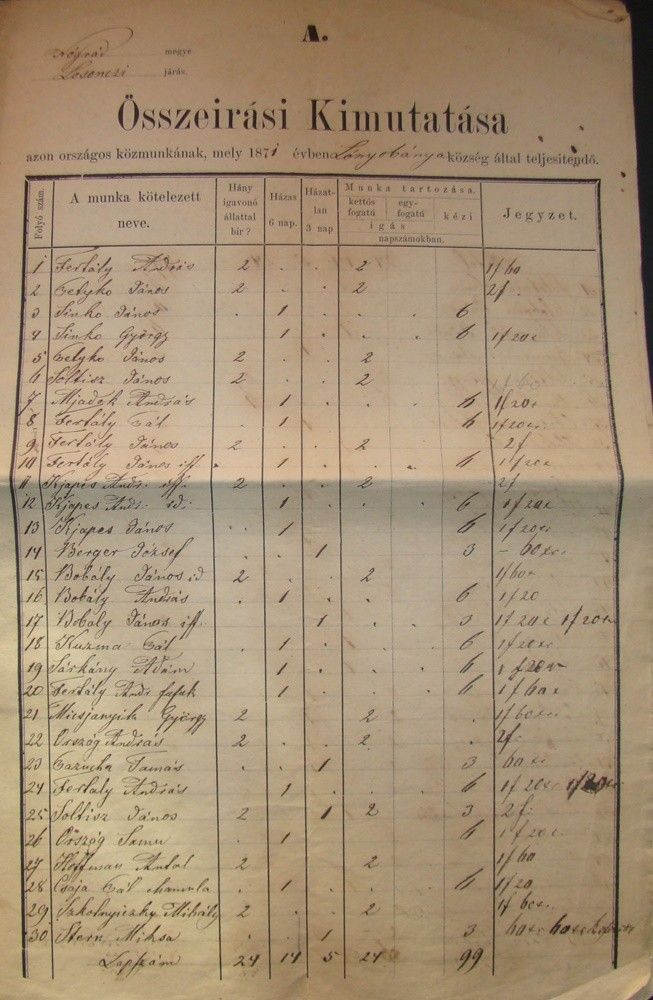 A.
Nógrád megye
Losonczi járás.
Összeirási Kimutatása
azon országos közmunkának, mely 1871 évben Lónyabánya község által teljesitendő.
Folyó szám. A munka kötelezett neve. Hány igavonó állattal bir? Házas 6 nap. Házatlan 3 nap Munka tartozása. kettős fogatú egyfogatú kézi igás napszámokban. Jegyzet.
1 Fertály András 2 . . 2 1f 60
2 János 2 . . 2 2f.
3 Sinko János . 1 . . . 6
4 Sinko György 1 . . . 6 1f 20x
5 János 2 . . 2
6 Soltisz János 2 . . 2 1f 60
7 András . 1 . . . 6 1f 20x
8 Fertály Pál . 1 . 6 1f 20x
9 Fertály János 2 . . 2 2f
10 Fertály János iff. . 1 . . 6 1f 20x
11 Kjapes Andr. iff. 2 . . 2 2f
12 Kjapes Andr. id. 1 . . 6 1f 20x
13 Kjapes János . 1 . 6 1f 20x
14 Berger József . . 1 3 - 60xr.
15 Bobály János id 2 . . 2 1f 60x
16 Bobály András . 1 . . 6 1f 20
17 Bobály János iff. . . 1 . . 3 1f 20x 1f 20x
18 Kuzma Pál . 1 . . . 6 1f 20xr
19 Sárkány Ádám 1 . . . 6 1f 20xr
20 Fertály Andr. . 1 . . . 6 1f 60x
21 György 2 2 . 1f 60xr
22 Ország András 2 . . 2 . 2f.
23 Tamás . . 1 3 60 xr
24 Fertály András 1 . . 6 1f 20xr 1f 20xr
25 Soltisz János 2 1 2 3 2f.
26 Ország Samu . 1 6 1f 20x
27 Hoffman Antal 2 2 1f 60
28 Csaja Pál . 1 . . . 6 1f 20
29 Mihály 2 . . 2 . 1f 60xr.
30 Stern Miksa . . 1 3 60xr 60xr
Lapszám 24 14 5 24 99